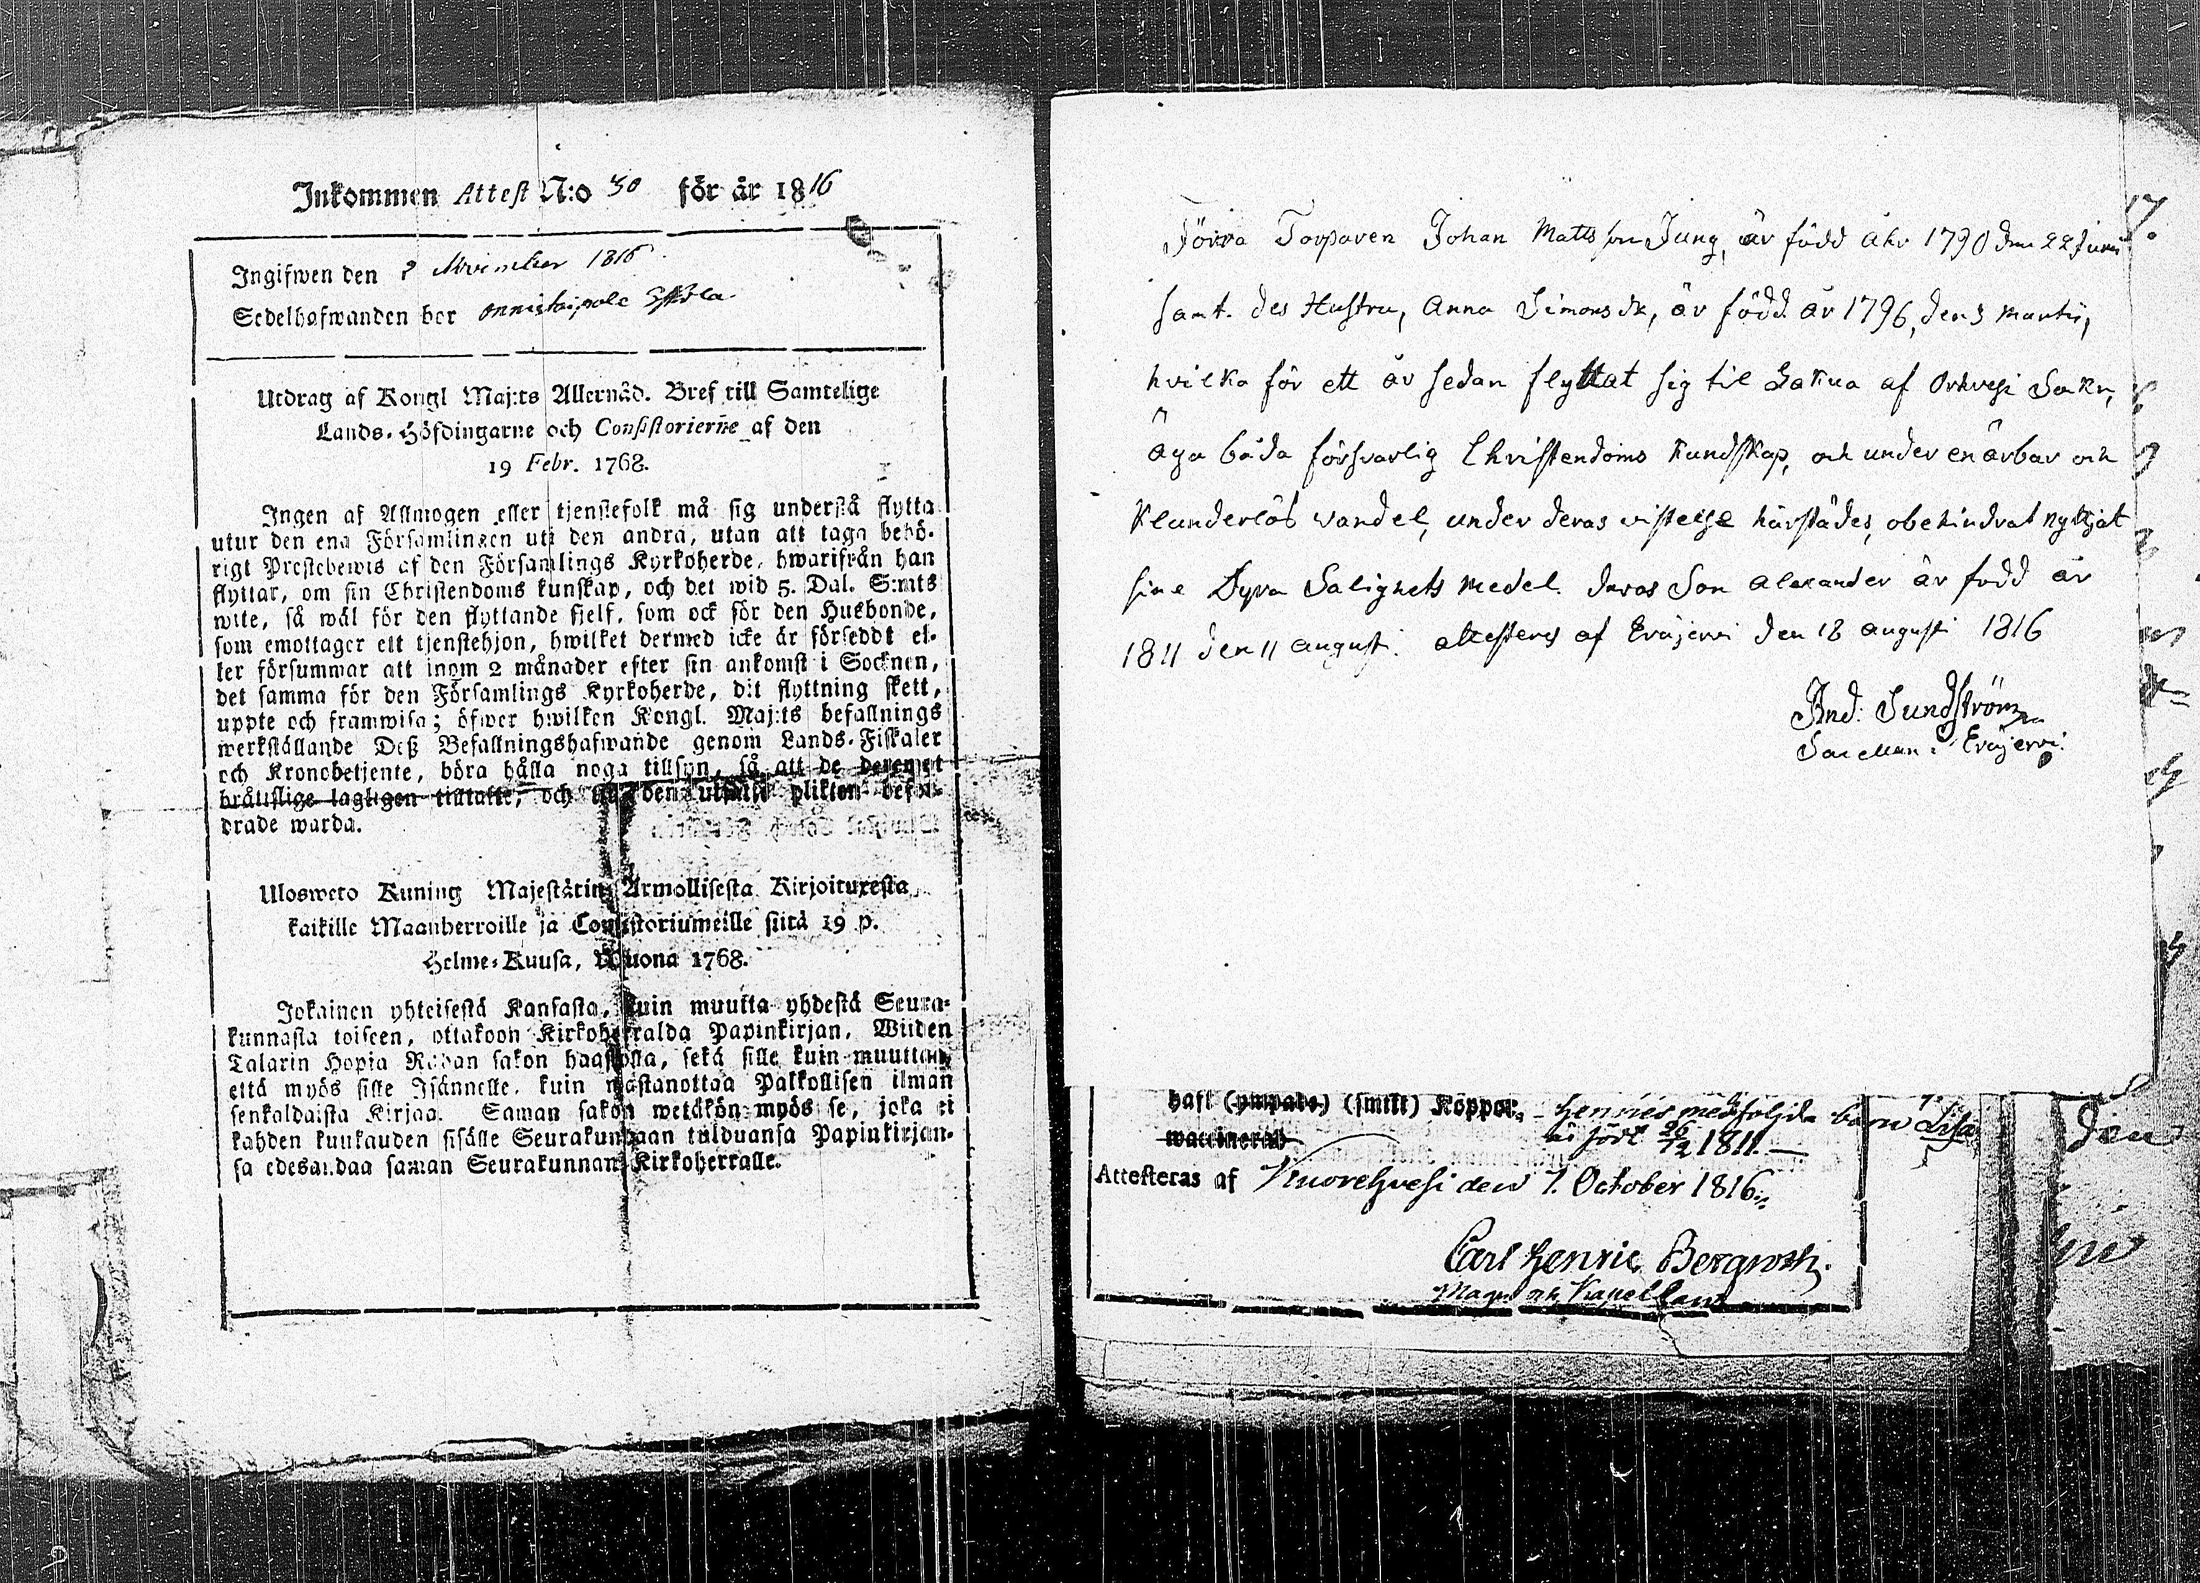 Inkommen Attest N:o 50 för år 1816
Ingifwen den 2 November 1816
Sedelhafwanden bor
Utdrag af Kongl Maj:ts Allernåd. Bref till Samtelige
Lands-Höfdingarne och Consistorierñe af den
19 Febr. 1768.
Ingen af Allmogen eller tjenstefolk må sig understå flytta
utur den ena Församlingen uti den andra, utan att taga behö-
rigt Prestebewis af den Församlings Kyrkoherde, hwarifrån han
flyttar, om sin Christendoms kunskap, och det wid 5. Dal. S:mts
wite, så wäl för den flyttande sjelf, som ock för den Husbonde,
som emottager ett tjenstehjon, hwilket dermed icke är förseddt el-
ler försummar att inom 2 månader efter sin ankomst i Socknen,
det samma för den Församlings Kyrkoherde, dit flyttning skett,
uppte och framwisa; öfwer hwilken Kongl. Maj:ts befallnings
werkställande Deß Befallningshafwande genom Lands-Fiskaler
och Kronobetjente, böra hålla noga tillsyn, så att de deremot
bråttslige lagligen tilltalte, och till den utsatte plikten befor-
drade warda.
Ulosweto Kuning Majestätin Armollisesta Kirjoituxesta
kaikille Maanherroille ja Consistoriumeille siitä 19 p.
Helme-Kuusa, Wuona 1768.
Jokainen yhteisestä Kansasta, kuin muutta yhdestä Seura-
kunnasta toiseen, ottakoon Kirkoherralda Papinkirjan, Wiiden
Talarin Hopia Rahan sakon haastolla, sekä sille kuin muuttaa,
että myös sille Isännelle, kuin wastanottaa Palkollisen ilman
senkaldaista Kirjaa. Saman sakon wetäkön myös se, joka ei
kahden kuukauden sisälle Seurakundaan tulduansa Papinkirjan-
sa edesandaa saman Seurakunnan Kirkoherralle.
17.
Förra Torparen Johan Mattsson Jung, är född åhr 1790 den 22 Juni
samt des Hustru, Anna Simonsdr, är född år 1796, den 3 Martii,
hvilka för ett år sedan flyttat sig til Sakua af Orhvesi Sokn,
Äga båda försvarlig Christendoms Kundskap, och under en ärbar och
Klanderlös vandel, under deras vistelse härstädes, obehindrat nyttjat
sine Dyra Salighets medel. deras Son Alexander är född år
1811 den 11 Augusti. attesteras af Eräjervi den 18 Augusti 1816
And: Sundström
Sacellan i Eräjervi.
haft (ympade) (smitt) Koppor, hennes medföljde barn Lisa
är född 26/2 1811.
waccinerad
Attesteras af Kuorehvesi den 7. October 1816
Carl Henric Bergroth.
Mag och Kapellan